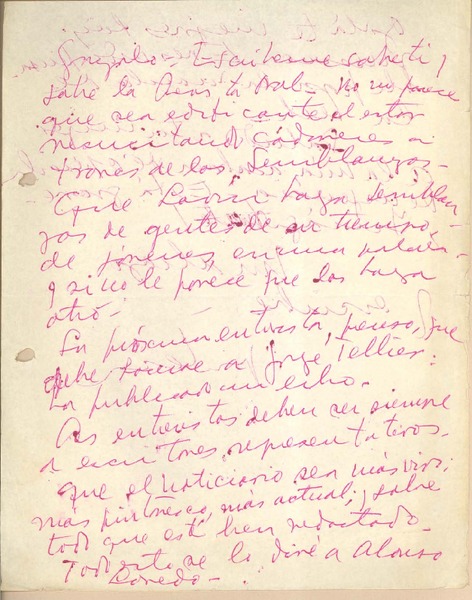 Gonzalo - Escríbeme sobre ti y
sobre la Revista Oral - No me parece
que sea edificante el estar
resucitando cádaveres a
través de las Semblanzas -
Que Lavín haga semblan
zas de gentes de su tiempo,
de jóvenes, en una palabra
y si no le parece que las haga
otro -
La próxima entrevista, pienso, que
debe hacerse a Jorge Tellier.
Ha publicado un libro -
Las entrevistas deben ser siempre
a escritores representativos -
que el Noticiario sea más vivo,
más pintoresco, más actual; y sobre
todo que esté bien redactado -
Todo esto se lo diré a Alonso
Laredo -